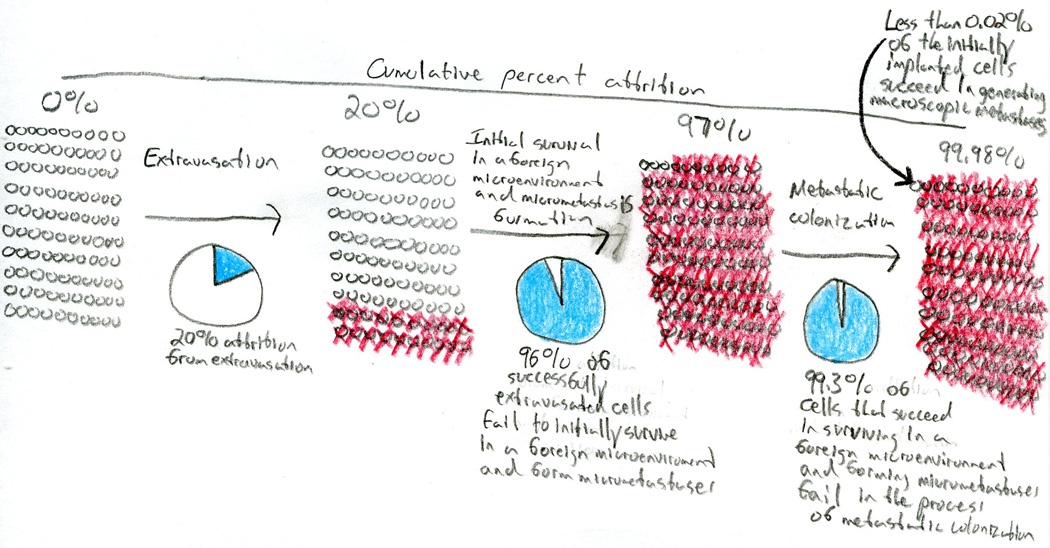 Less than 0.02%
of the initially
implanted cells
succeed in generating
macroscopic metastases
Cumulative percent attrition
0%
20%
97%
99.98%
Extravasation
20% attrition
from extravasation
Initial survival
in a foreign
microenvironment
and micrometastasis
formation
96% of
successfully
extravasated cells
fail to initially survive
in a foreign microenviroment
and form micrometastases
Metastatic
colonization
99.3% of
cells that succeed
in surviving in a
foreign microenvironment
and forming micrometastases
fail in the process
of metastatic colonization